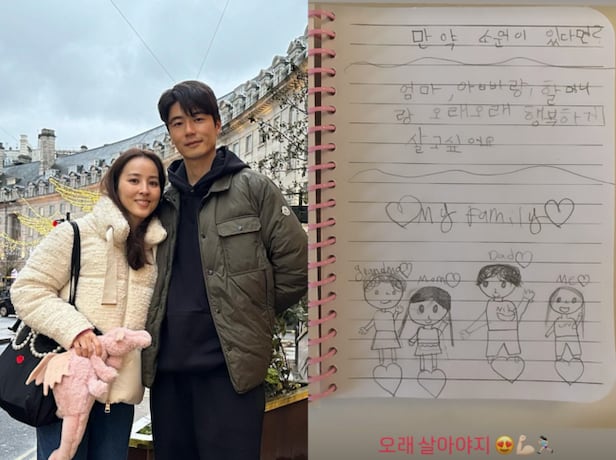 만약 소원이 있다면?
엄마, 아빠랑, 할머니
랑 오래오래 행복하게
살구싶어요
♡My Family♡
grandma♡ Mom♡ Dad♡ Me♡
오래 살아야지 😍💪🏻👨🏻‍🦯